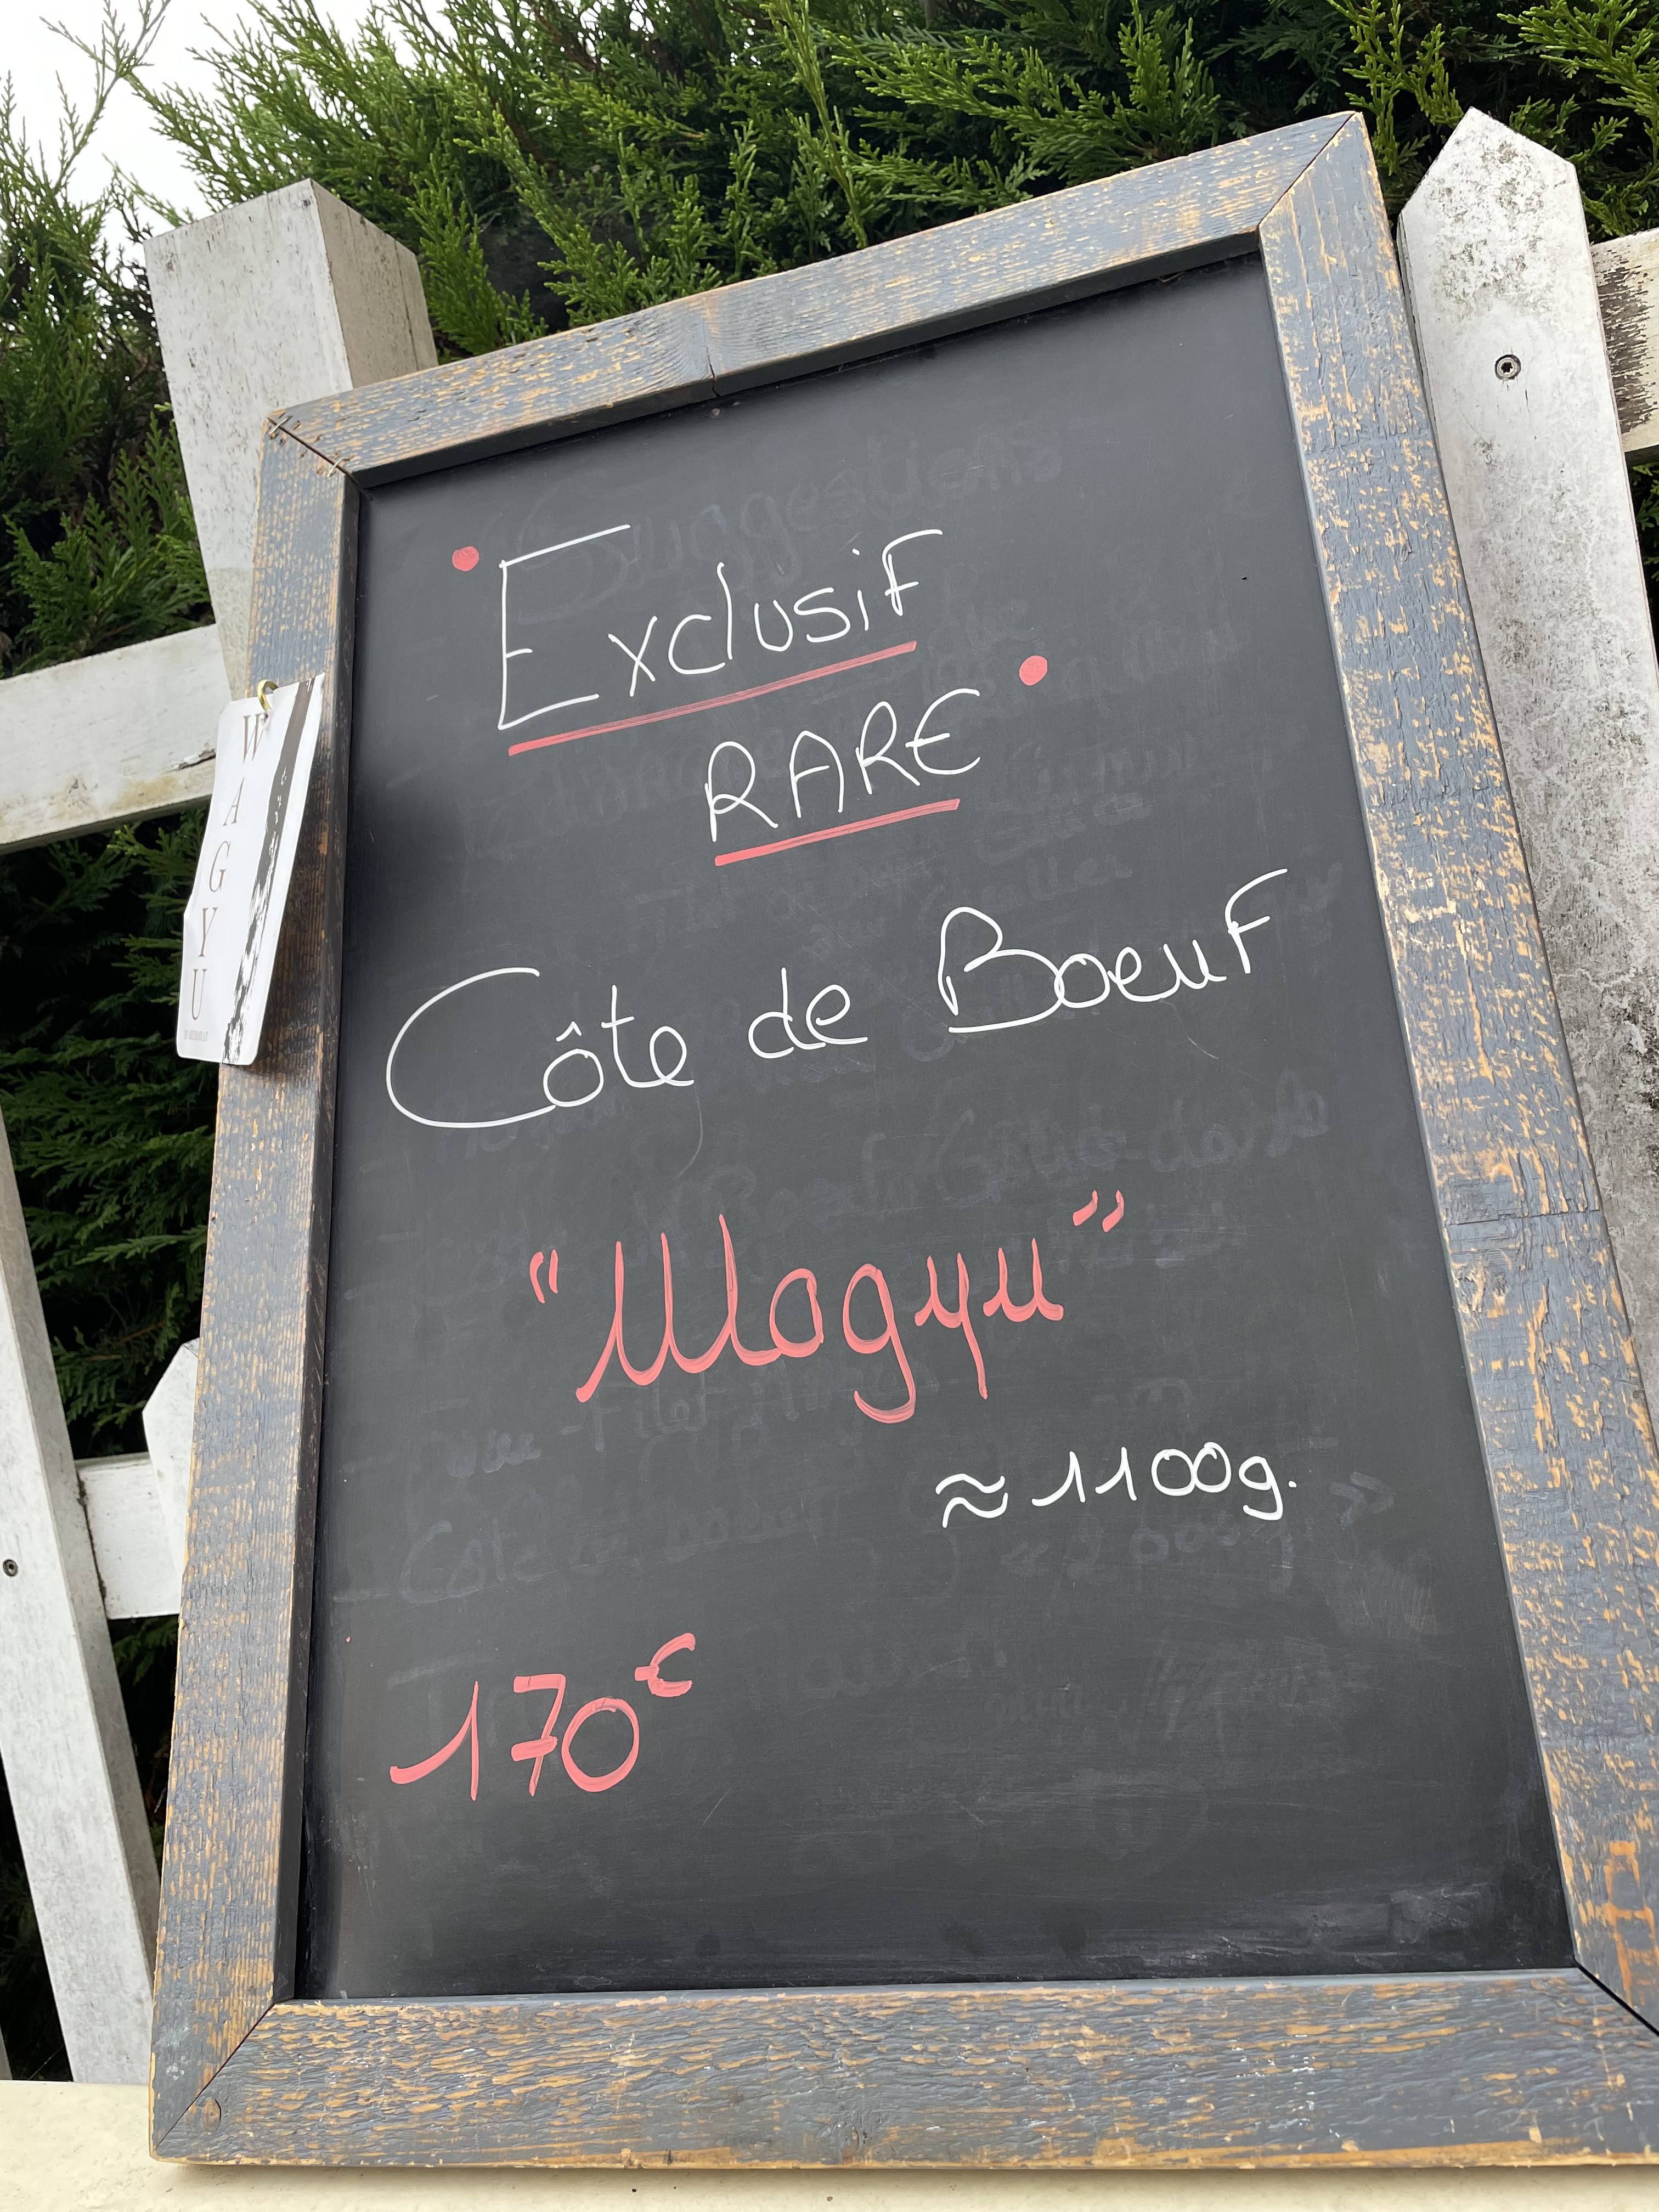 Exclusif
RARE
Côte de Boeuf
"Wagyu"
≈ 1100g.
170€
WAGYU